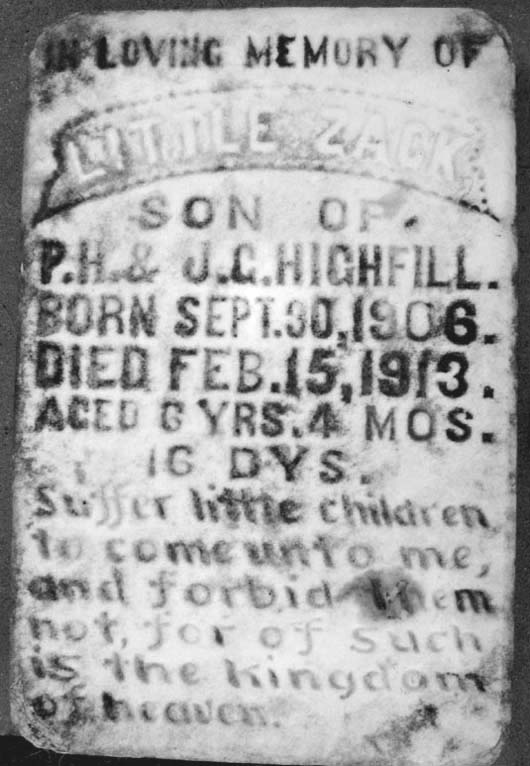 IN LOVING MEMORY OF
LITTLE ZACK,
SON OF.
P.H.& J.C.HIGHFILL.
BORN SEPT.30,1906.
DIED FEB.15,1913.
AGED 6 YRS.4 MOS.
16 DYS.
Suffer little children
to come unto me,
and forbid them
not, for of such
is the kingdom
of heaven.